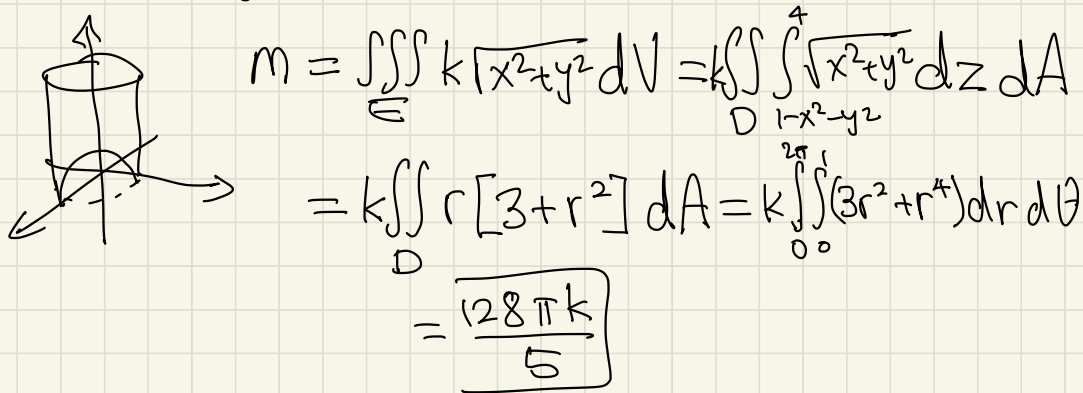 m = ∭_E k√(x²+y²) dV = k∬_D ∫_{1-x²-y²}^{4} √(x²+y²) dz dA
= k∬_D r[3+r²] dA = k∫_0^{2π}∫_0^1 (3r²+r⁴) dr dθ
= 128πk/5